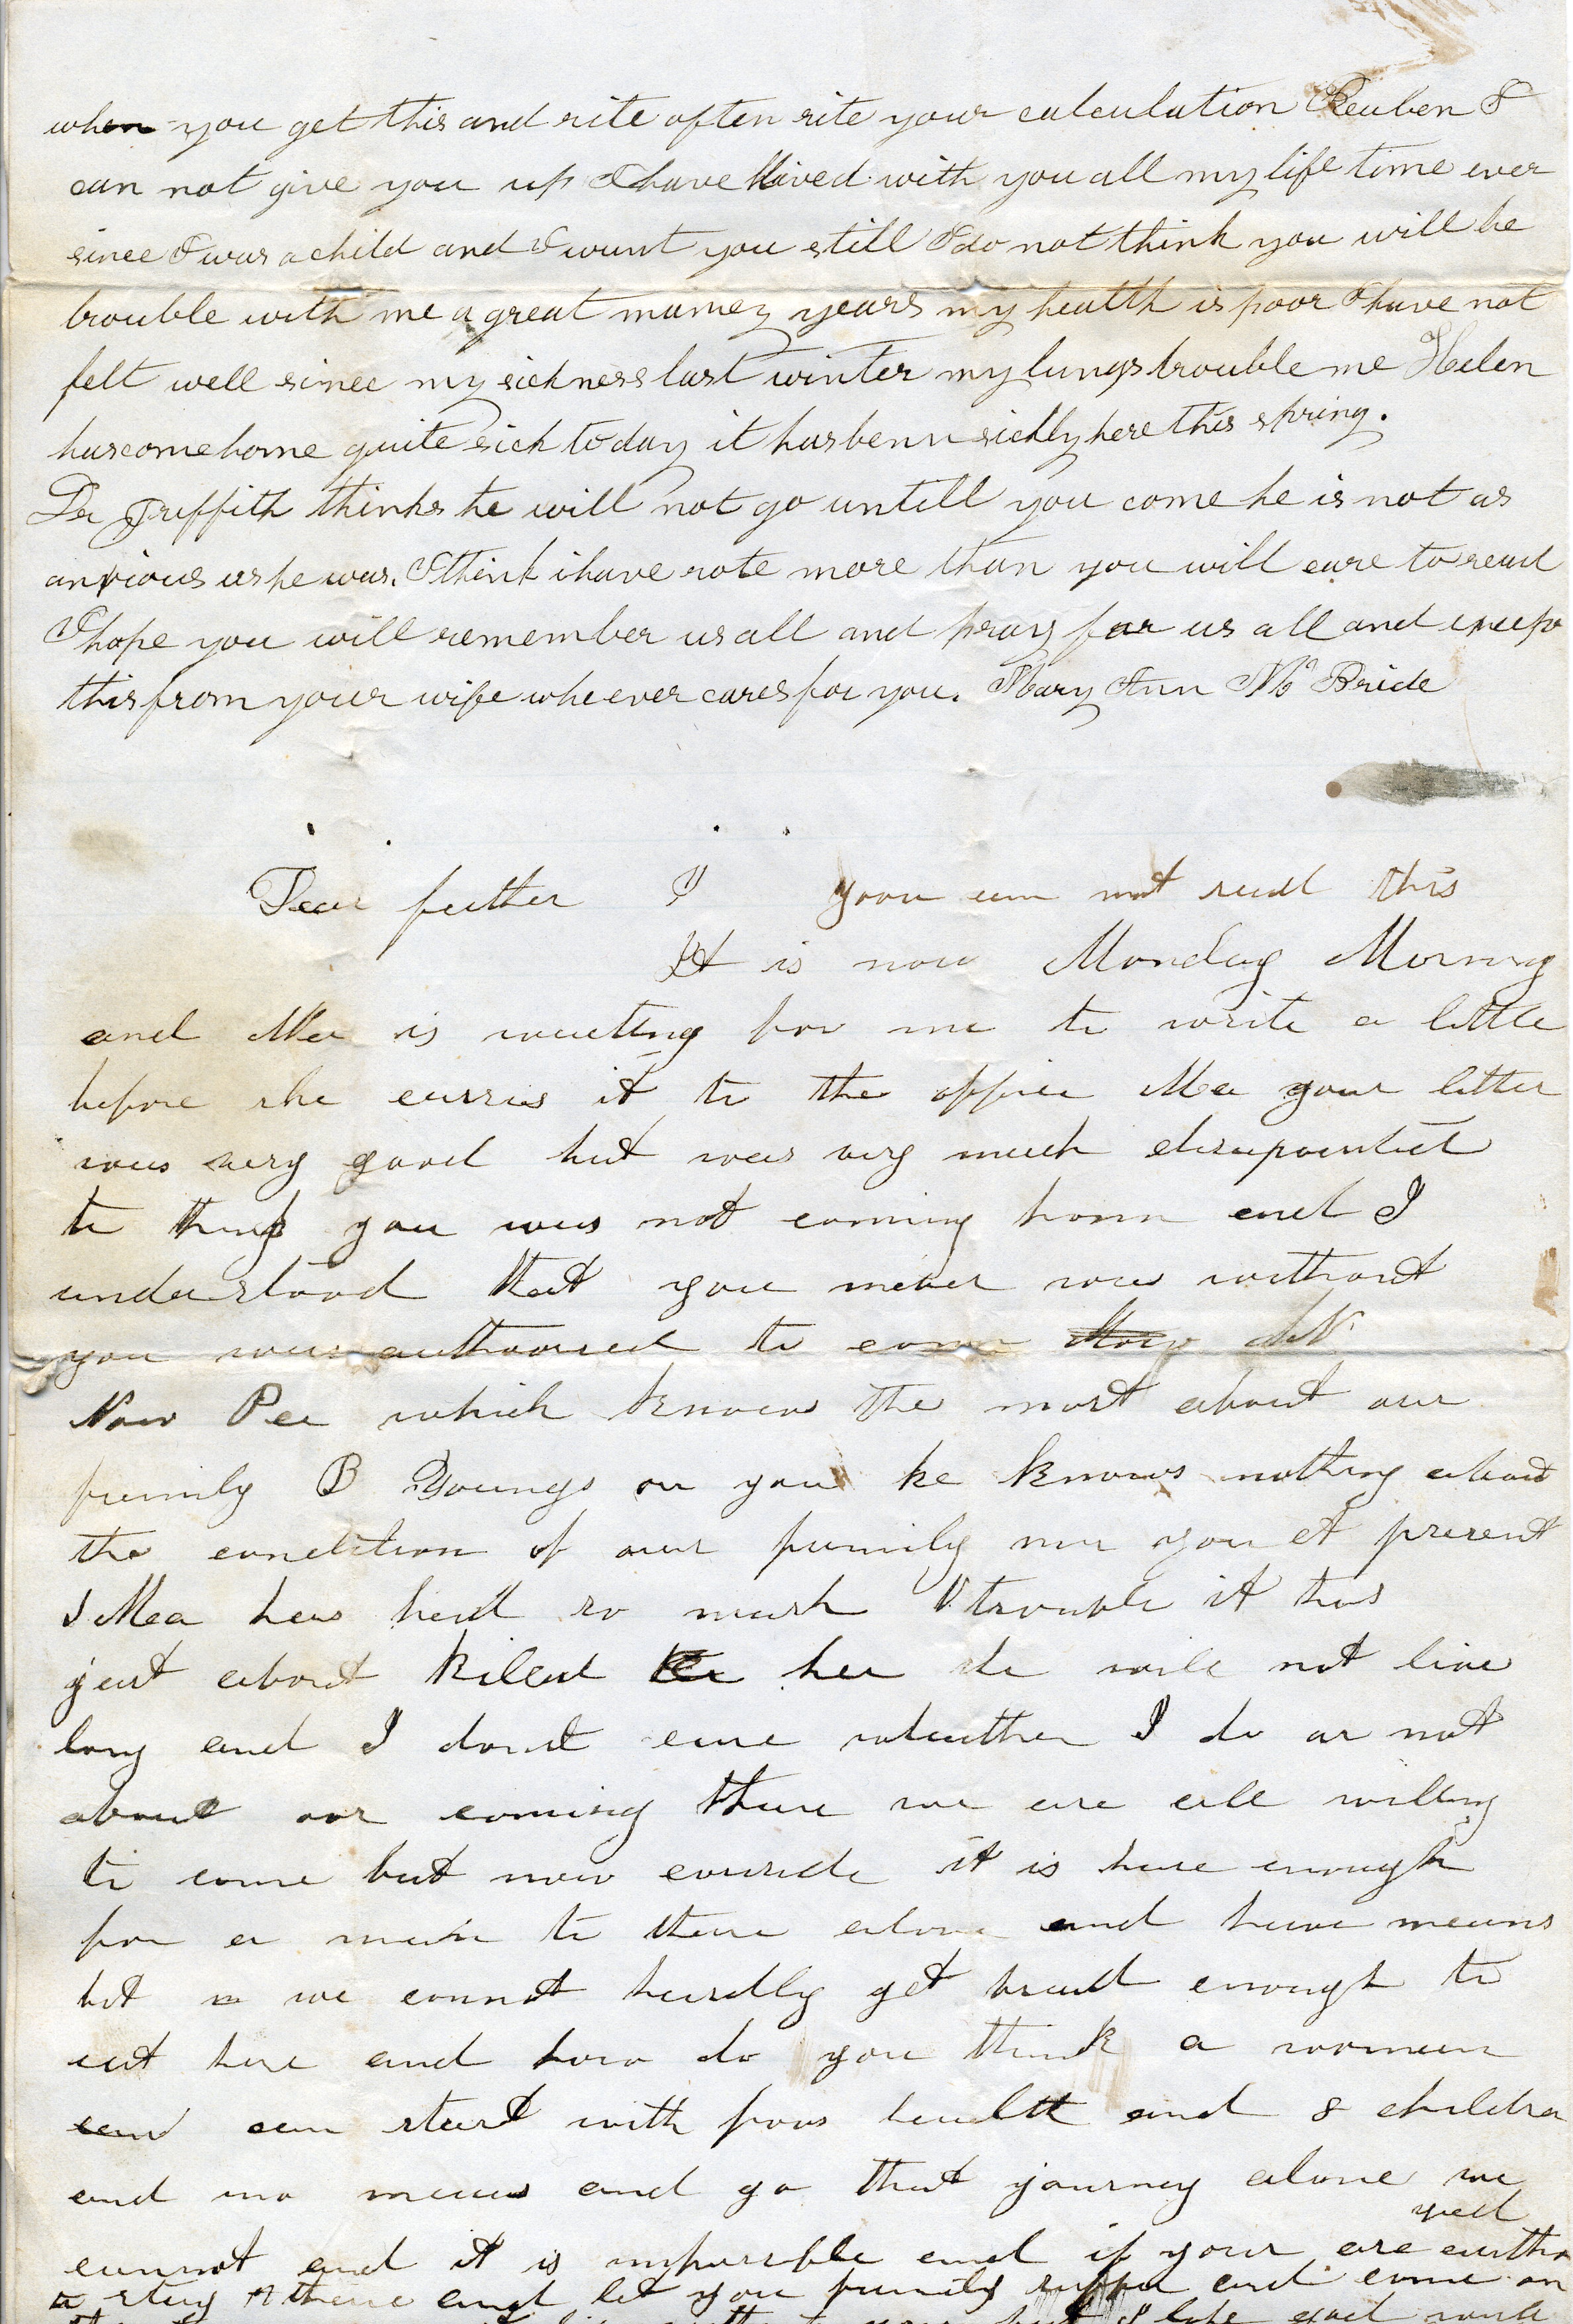 when you get this and rite often rite your calculation Reuben I
can not give you up I have llived with you all my life time ever
since I was a child and I want you still I do not think you will be
trouble with me a great maney years my health is poor I have not
felt well since my sickness last winter my lungs trouble me Helen
has come home quite sick to day it has benn sickly here this spring.
Griffith thinks he will not go untill you come he is not as
anxious as he was. I think i have rote more than you will care to read
I hope you will remember us all and pray for us all and
this from your wife who ever cares for you. Mary Ann Mc Bride
Dear father I yoou can not read this
It is now Monday Morning
and Ma is waiting for me to write a little
before she carries it to the office Ma your letter
was very good but was very much
to think you was not coming home and I
understood that you never was without
you was to come
Now Pa which knows the most about our
family B Youngs or you he knows nothing about
the condition of our family nor you at present
Ma has had so much trouble it has
just about killed her she will not live
long and I dont care wheather I do or not
about our coming there we are all willing
to come but now it is hard enough
for a man to there alone and have means
but we cannot hardly get bread enough to
eat here and how do you think a woman
can start with poor health and 8 children
and no means and go that journey alone we
cannot and it is impossible and if your are
to stay there and let you family suffer and come on